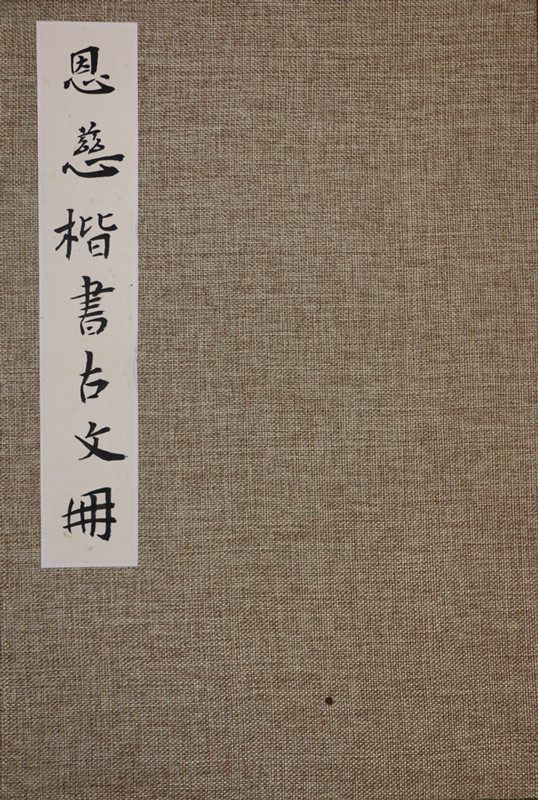 恩慈楷書古文冊